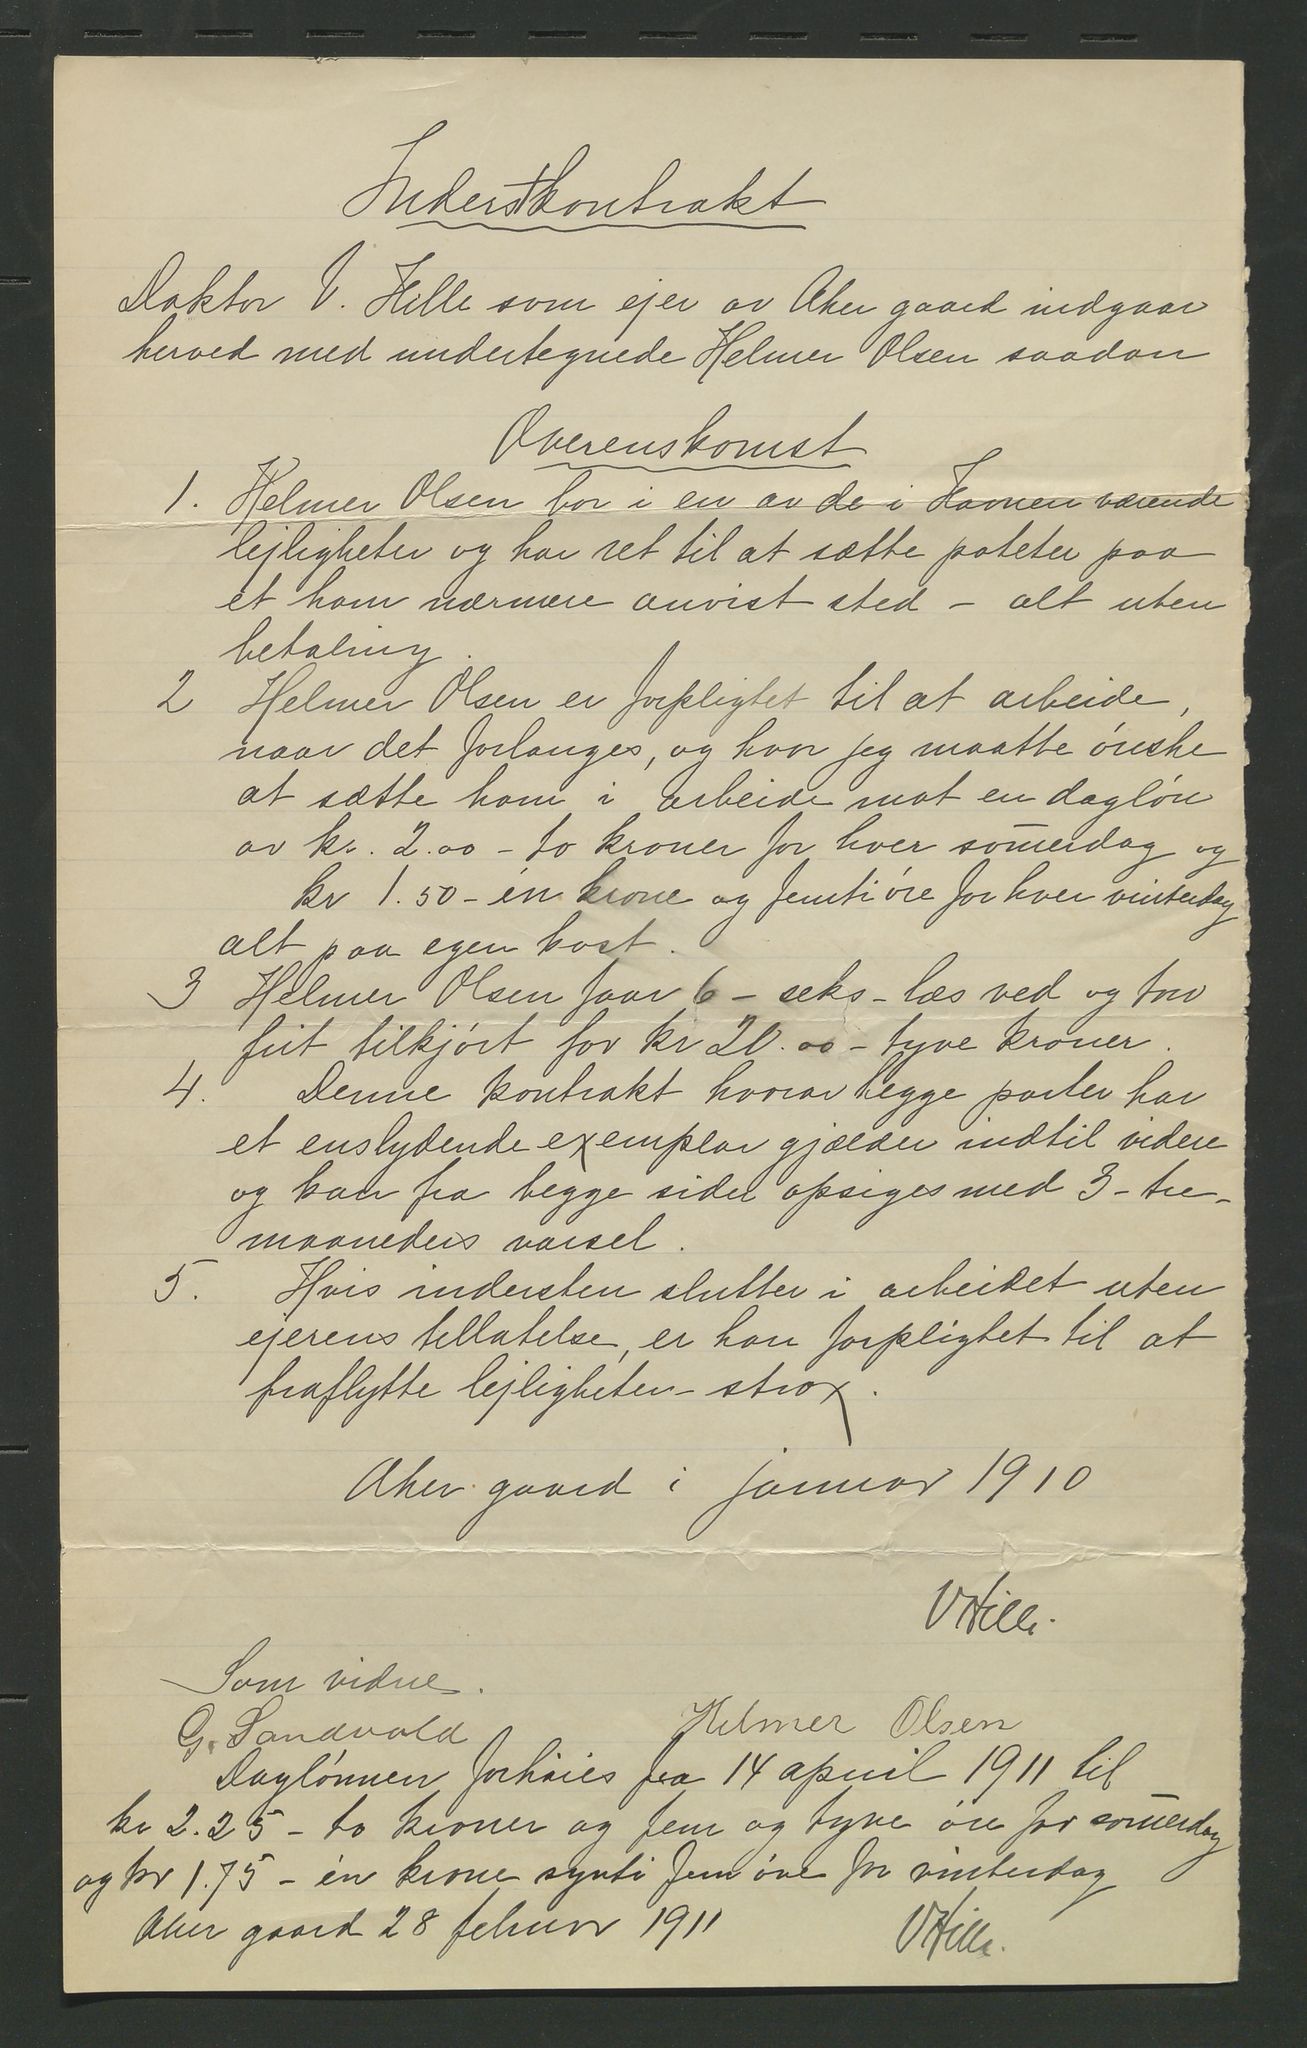 Inderstkontrakt
Doktor V. Hille som ejer av Aker gaard indgaar
herved med undertegnede Helmer Olsen saadan
Overenskomst
1. Helmer Olsen bor i en av de i Havnen værende
lejligheter og har ret til at sætte poteter paa
et ham nærmere anvist sted – alt uten
betaling.
2 Helmer Olsen er forpligtet til at arbeide,
naar det forlanges, og hvor jeg maatte ønske
at sætte ham i arbeide mot en dagløn
av kr. 2.00 – to kroner for hver som̄erdag og
kr 1.50 – én krone og femti øre for hver vinterdag
alt paa egen kost.
3 Helmer Olsen faar 6 – seks – læs ved og
frit tilkjørt for kr 20.00 – tyve kroner.
4. Denne kontrakt hvorav begge parter har
et enslydende exemplar gjælder indtil videre
og kan fra begge sider opsiges med 3 – tre –
maaneders varsel.
5. Hvis indersten slutter i arbeidet uten
ejerens tillatelse, er han forpligtet til at
fraflytte lejligheten strax.
Aker gaard i januar 1910
VHille.
Som vidne.
G. Sandvold Helmer Olsen
Daglønnen forhøies fra 14 april 1911 til
kr 2.25 – to kroner og fem og tyve øre for som̄erdag
og kr 1.75 – én krone sytti fem øre for vinterdag
Aker gaard 28 februar 1911 VHille.